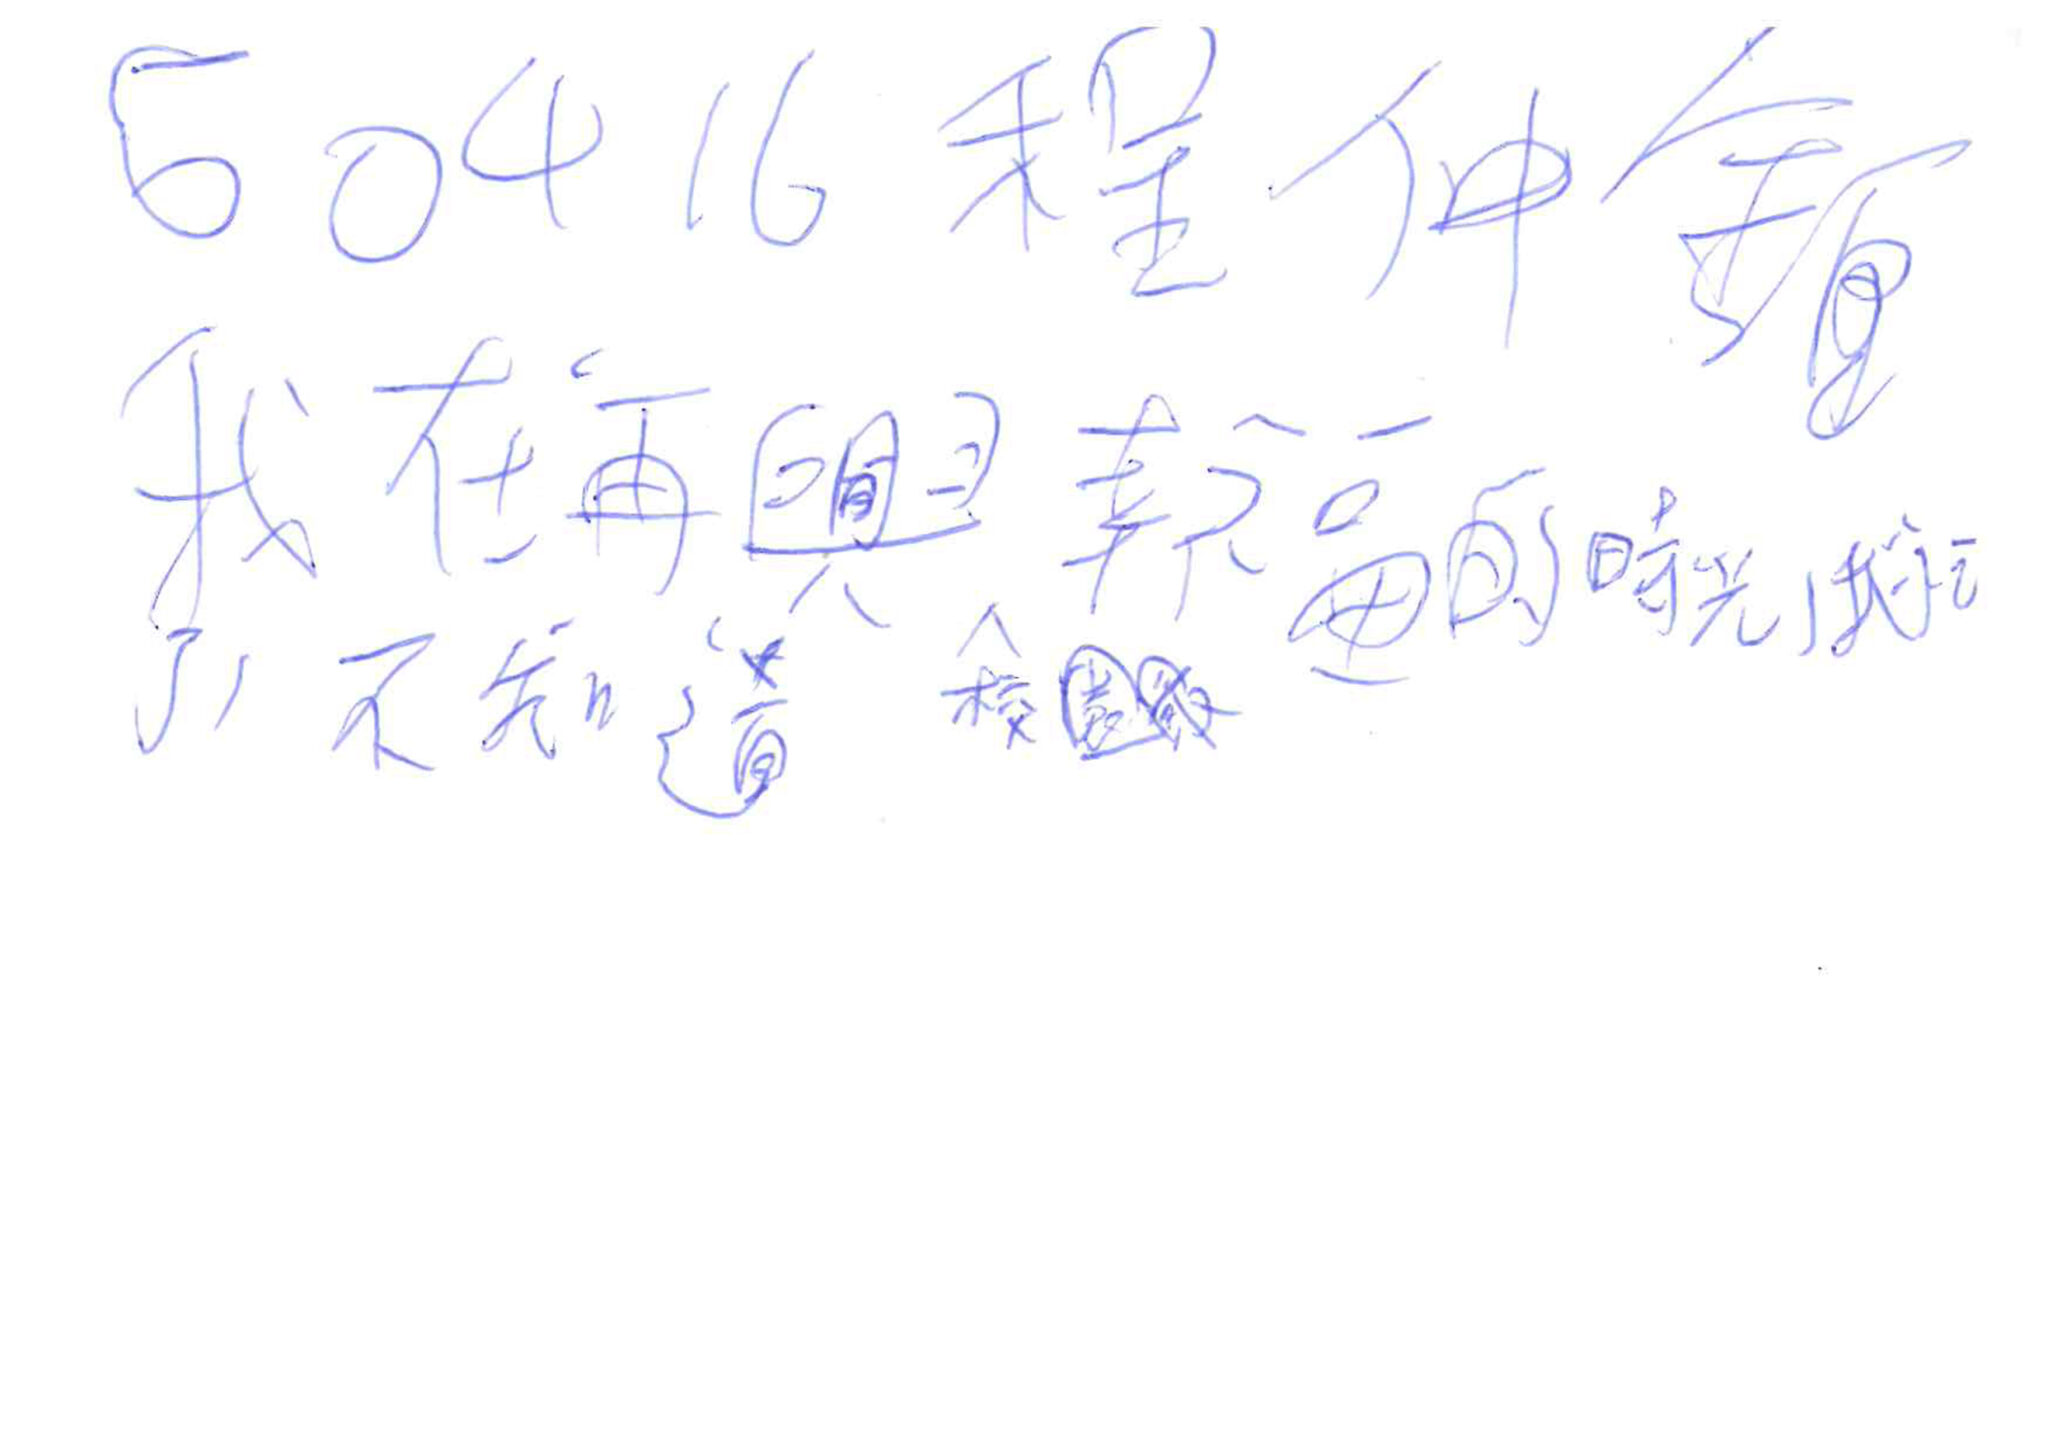 50416 程仲
我在再興幸福的時光,我
了,不知道 校園